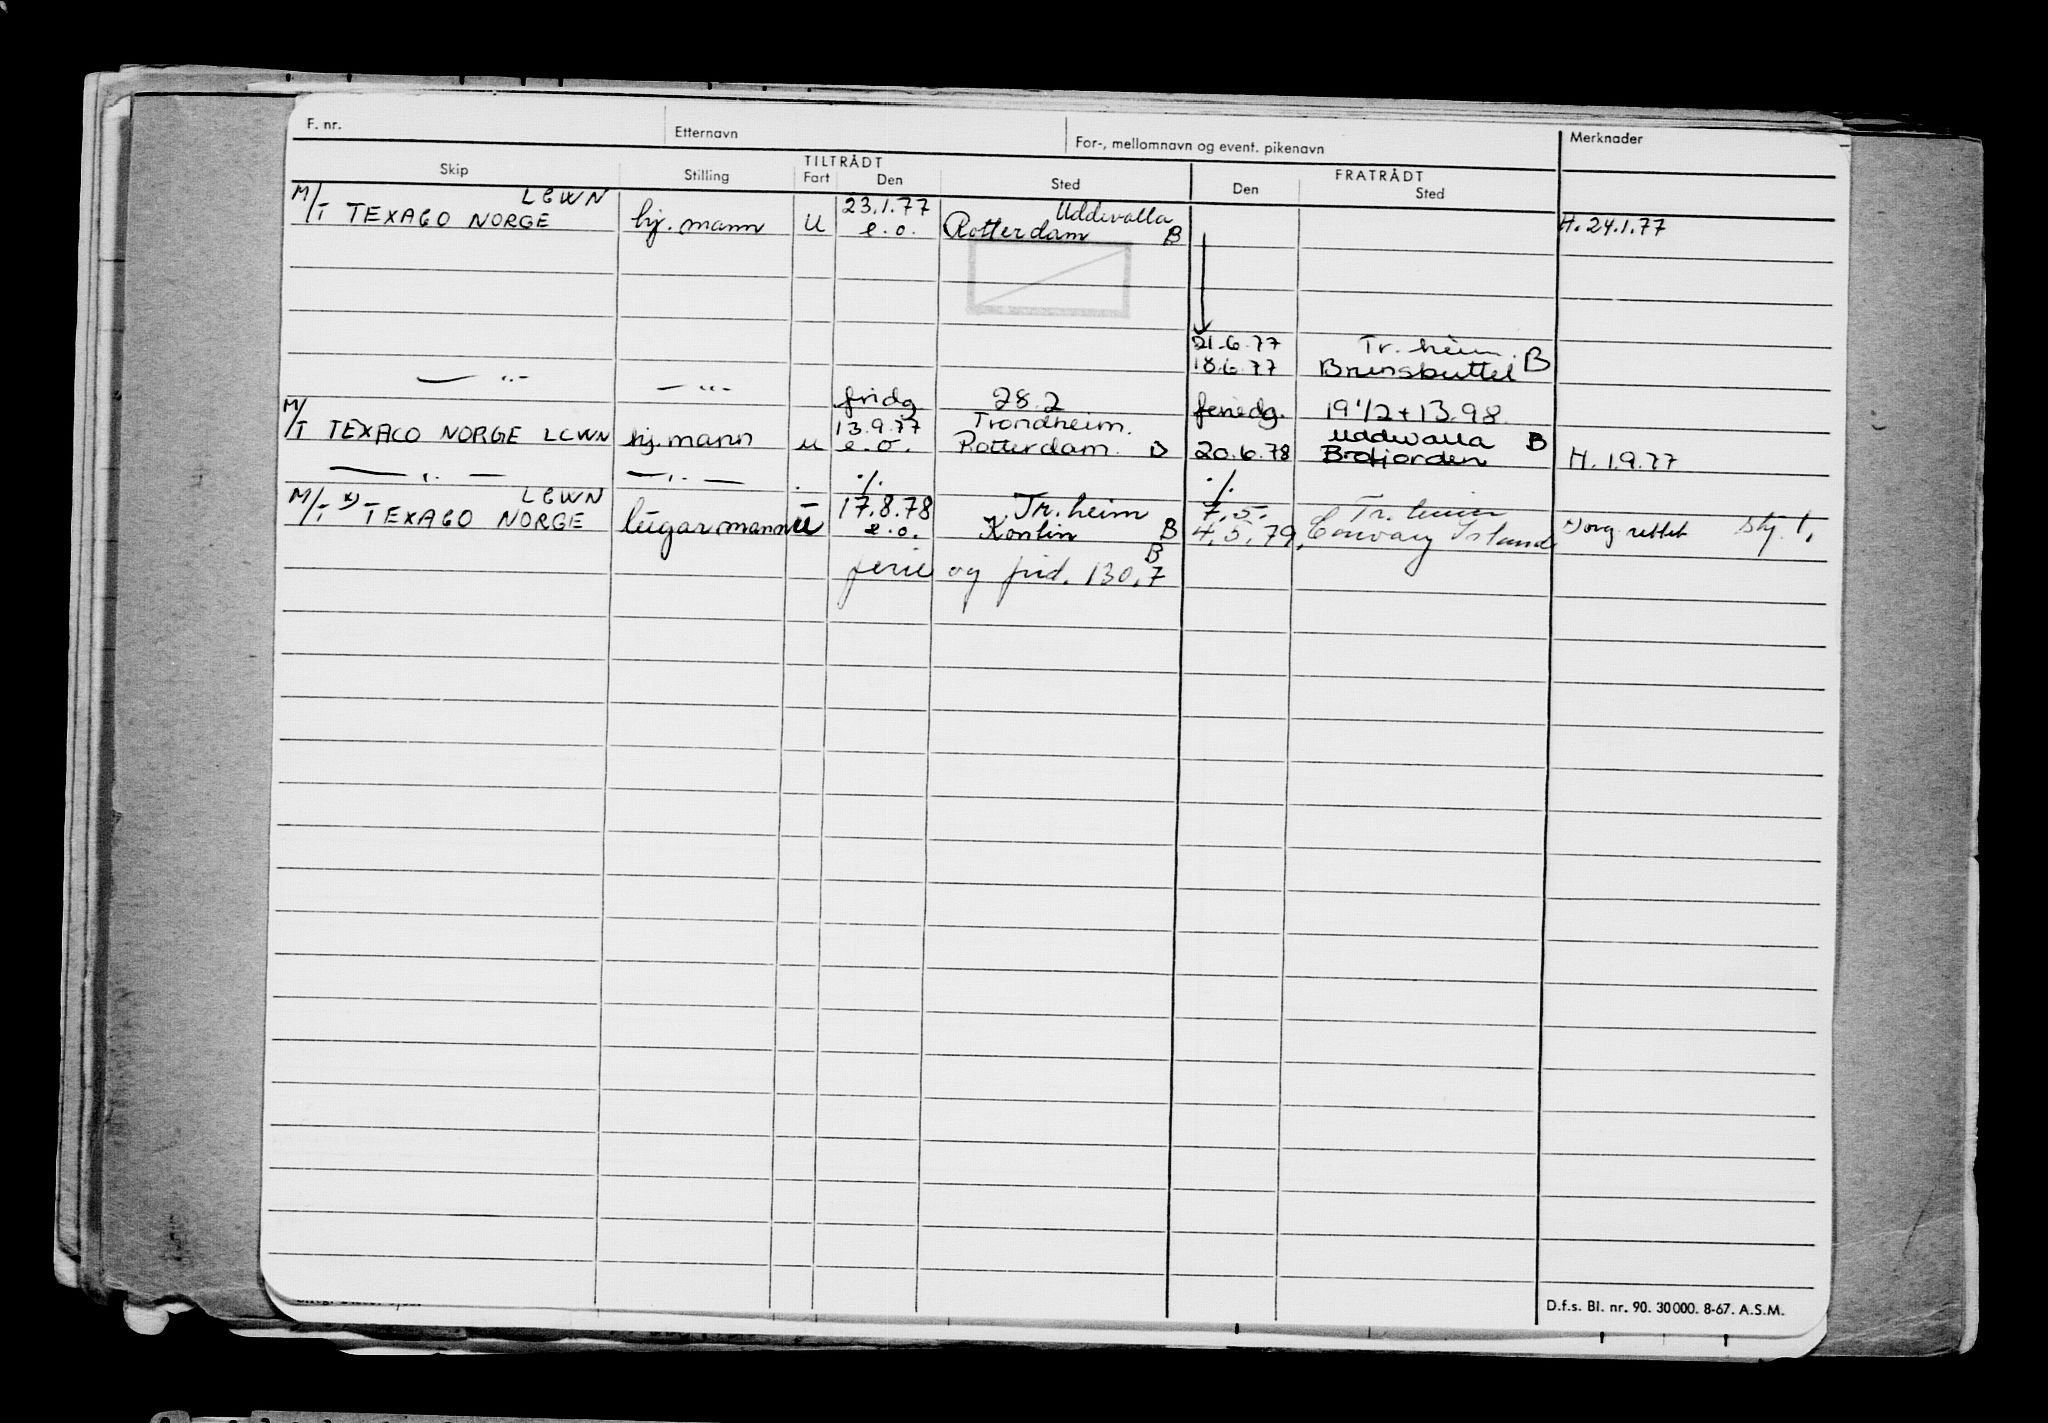 F. nr. Etternavn For-, mellomnavn og event. pikenavn Merknader
TILTRÅDT FRATRÅDT
Skip Stilling Fart Den Sted Den Sted
LCWN 23.1.77 Uddevalla
M/T TEXACO NORGE hj. mann U e.o. Rotterdam B H. 24.1.77
21.6.77 Tr. heim
18.6.77 Brunsbuttel B
— " — — " —
fridg 28.2 feriedg. 19 1/2 + 13.98
13.9.77 Trondheim. Uddevalla
M/T TEXACO NORGE LCWN hj. mann u e.o. Rotterdam B 20.6.78 Brofjorden B H. 1.9.77
— " — — " — ./. ./.
LCWN 17.8.78 Tr. heim 7.5. Tr. heim
M/T x) TEXACO NORGE lugarmann U e.o. B 4.5.79 Island x) org. rettet
B
ferie og frid. 130,7
D.f.s. Bl. nr. 90. 30000. 8-67. A.S.M.